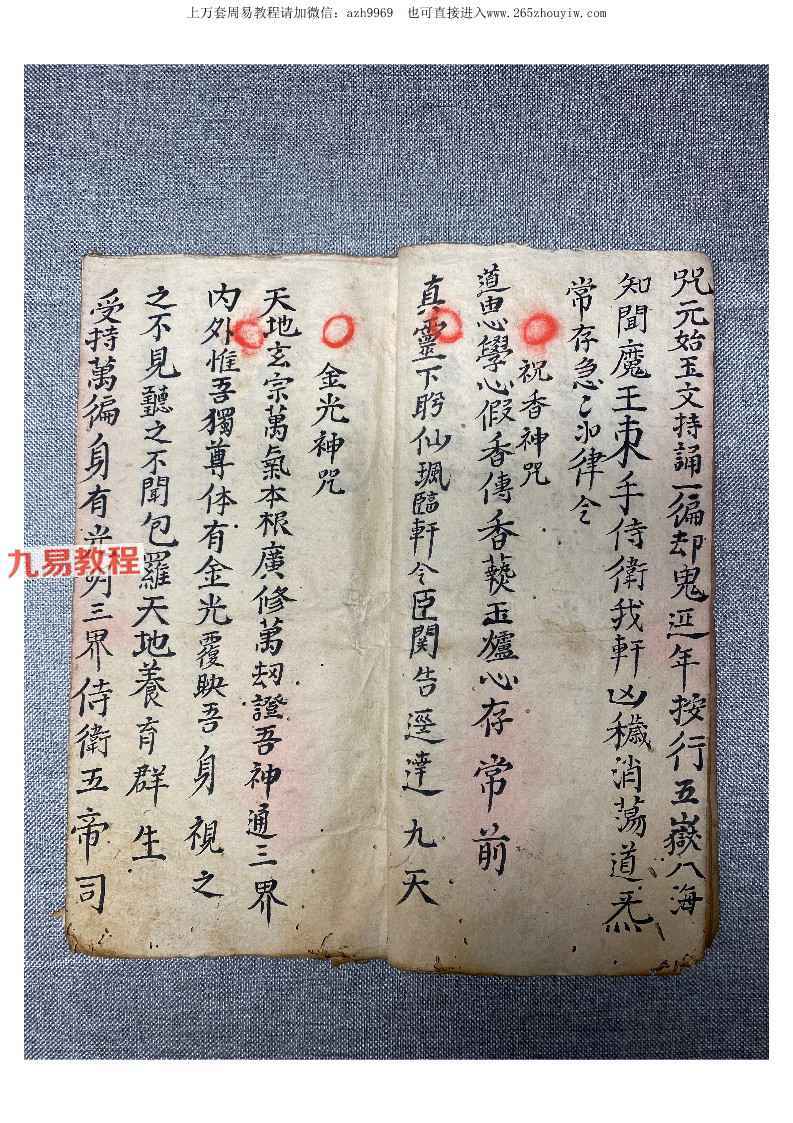 上万套周易教程请加微信：azh9969 也可直接进入www.265zhouyiw.com
咒元始玉文持誦一徧却鬼延年按行五嶽八海
知聞魔王束手侍衛我軒凶穢消蕩道炁
常存急〻如律令
祝香神咒
道由心學心假香傳香爇玉爐心存常前
真靈下盻仙珮臨軒令臣関告逕達九天
金光神咒
天地玄宗萬氣本根廣修萬劫證吾神通三界
内外惟吾獨尊体有金光覆映吾身視之
之不見聽之不聞包羅天地養育群生
受持萬徧身有光明三界侍衛五帝司
九易教程